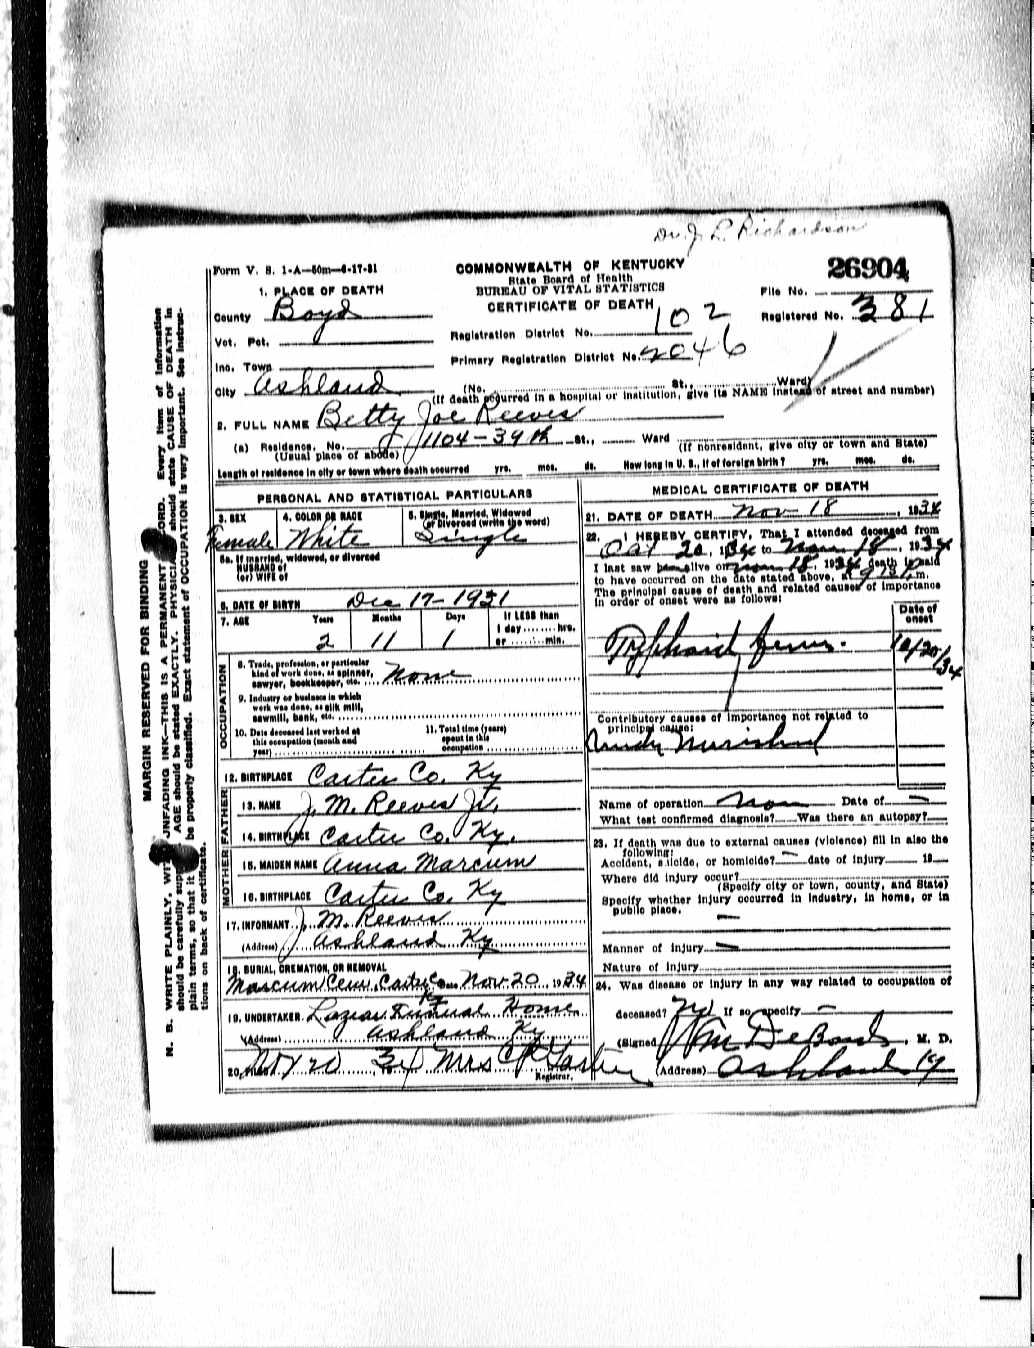 Dr. J. L. Richardson
Form V. S. 1-A—50m—6-17-31
COMMONWEALTH OF KENTUCKY
State Board of Health
BUREAU OF VITAL STATISTICS
CERTIFICATE OF DEATH
26904
File No.
Registered No. 381
1. PLACE OF DEATH
County Boyd
Vot. Pct.
Inc. Town
City Ashland
Registration District No. 102
Primary Registration District No. 2046
(No. St., Ward)
(If death occurred in a hospital or institution, give its NAME instead of street and number)
2. FULL NAME Betty Joe Reeves
(a) Residence, No. 1104-39th St., Ward
(Usual place of abode)
(If nonresident, give city or town and State)
Length of residence in city or town where death occurred yrs. mos. ds. How long in U. S., if of foreign birth? yrs. mos. ds.
PERSONAL AND STATISTICAL PARTICULARS
3. SEX Female
4. COLOR OR RACE White
5. Single, Married, Widowed
or Divorced (write the word)
Single
5a. If married, widowed, or divorced
HUSBAND of
(or) WIFE of
6. DATE OF BIRTH Dec 17-1931
7. AGE Years Months Days If LESS than
1 day hrs.
or min.
2 11 1
OCCUPATION
8. Trade, profession, or particular
kind of work done, as spinner,
sawyer, bookkeeper, etc. None
9. Industry or business in which
work was done, as silk mill,
sawmill, bank, etc.
10. Date deceased last worked at
this occupation (month and
year)
11. Total time (years)
spent in this
occupation
12. BIRTHPLACE Carter Co. Ky
FATHER
13. NAME J. M. Reeves Jr.
14. BIRTHPLACE Carter Co. Ky.
MOTHER
15. MAIDEN NAME Anna Marcum
16. BIRTHPLACE Carter Co. Ky
17. INFORMANT J. M. Reeves
(Address) Ashland Ky
18. BURIAL, CREMATION, OR REMOVAL
Marcum Cem. Carter Co Ky Date Nov-20, 1934
19. UNDERTAKER Lazear Funeral Home
(Address) Ashland Ky
20. Nov 20 34 Mrs
Registrar.
MEDICAL CERTIFICATE OF DEATH
21. DATE OF DEATH Nov 18, 1934
22. I HEREBY CERTIFY, That I attended deceased from
Oct 20, 1934 to Nov 18, 1934
I last saw alive on Nov 18, 1934 death is said
to have occurred on the date stated above, at m.
The principal cause of death and related causes of importance
in order of onset were as follows:
Date of
onset
Typhoid fever. 10/20/34
Contributory causes of importance not related to
principal cause:
Under Nourished
Name of operation None Date of —
What test confirmed diagnosis? Was there an autopsy?
23. If death was due to external causes (violence) fill in also the
following:
Accident, suicide, or homicide? — date of injury 19
Where did injury occur?
(Specify city or town, county, and State)
Specify whether injury occurred in industry, in home, or in
public place.
—
Manner of injury —
Nature of injury
24. Was disease or injury in any way related to occupation of
deceased? No If so specify —
(Signed) Wm DeBord, M. D.
(Address) Ashland Ky
MARGIN RESERVED FOR BINDING
N. B. WRITE PLAINLY, WITH UNFADING INK—THIS IS A PERMANENT RECORD. Every item of information
should be carefully supplied. AGE should be stated EXACTLY. PHYSICIANS should state CAUSE OF DEATH in
plain terms, so that it may be properly classified. Exact statement of OCCUPATION is very important. See instruc-
tions on back of certificate.